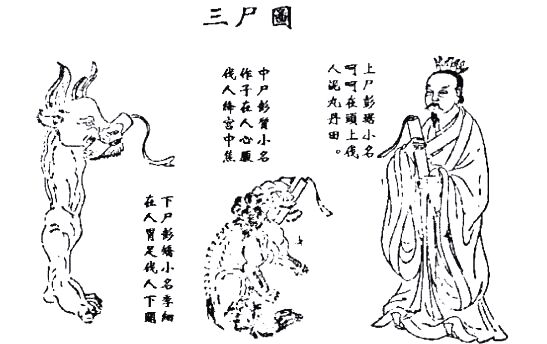 三尸圖
上尸彭琚小名
呵呵在頭上伐
人泥丸丹田。
中尸彭質小名
作子在人心腹
伐人絳宮中焦
下尸彭矯小名季細
在人胃足伐人下關